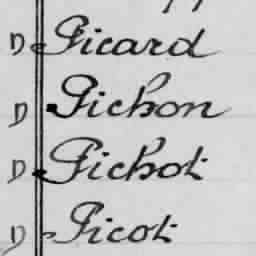 D Picard
D Pichon
D Pichot
D Picot